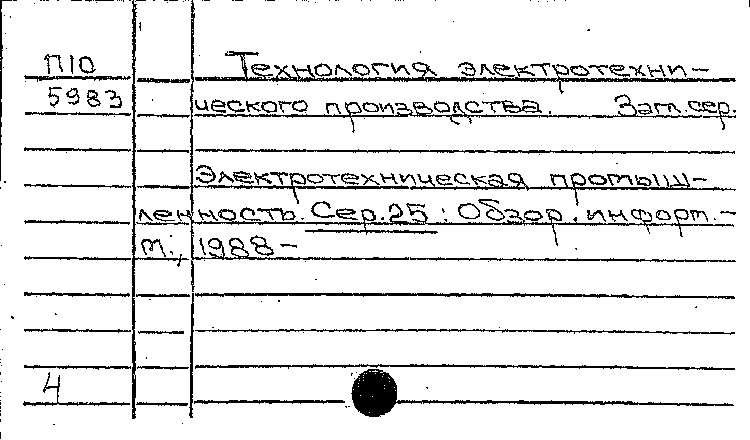 П10 Технология электротехни-
5983 ческого производства. Загл. сер.
Электротехническая промыш-
ленность. Сер. 25 : Обзор. информ. -
М., 1988-
4